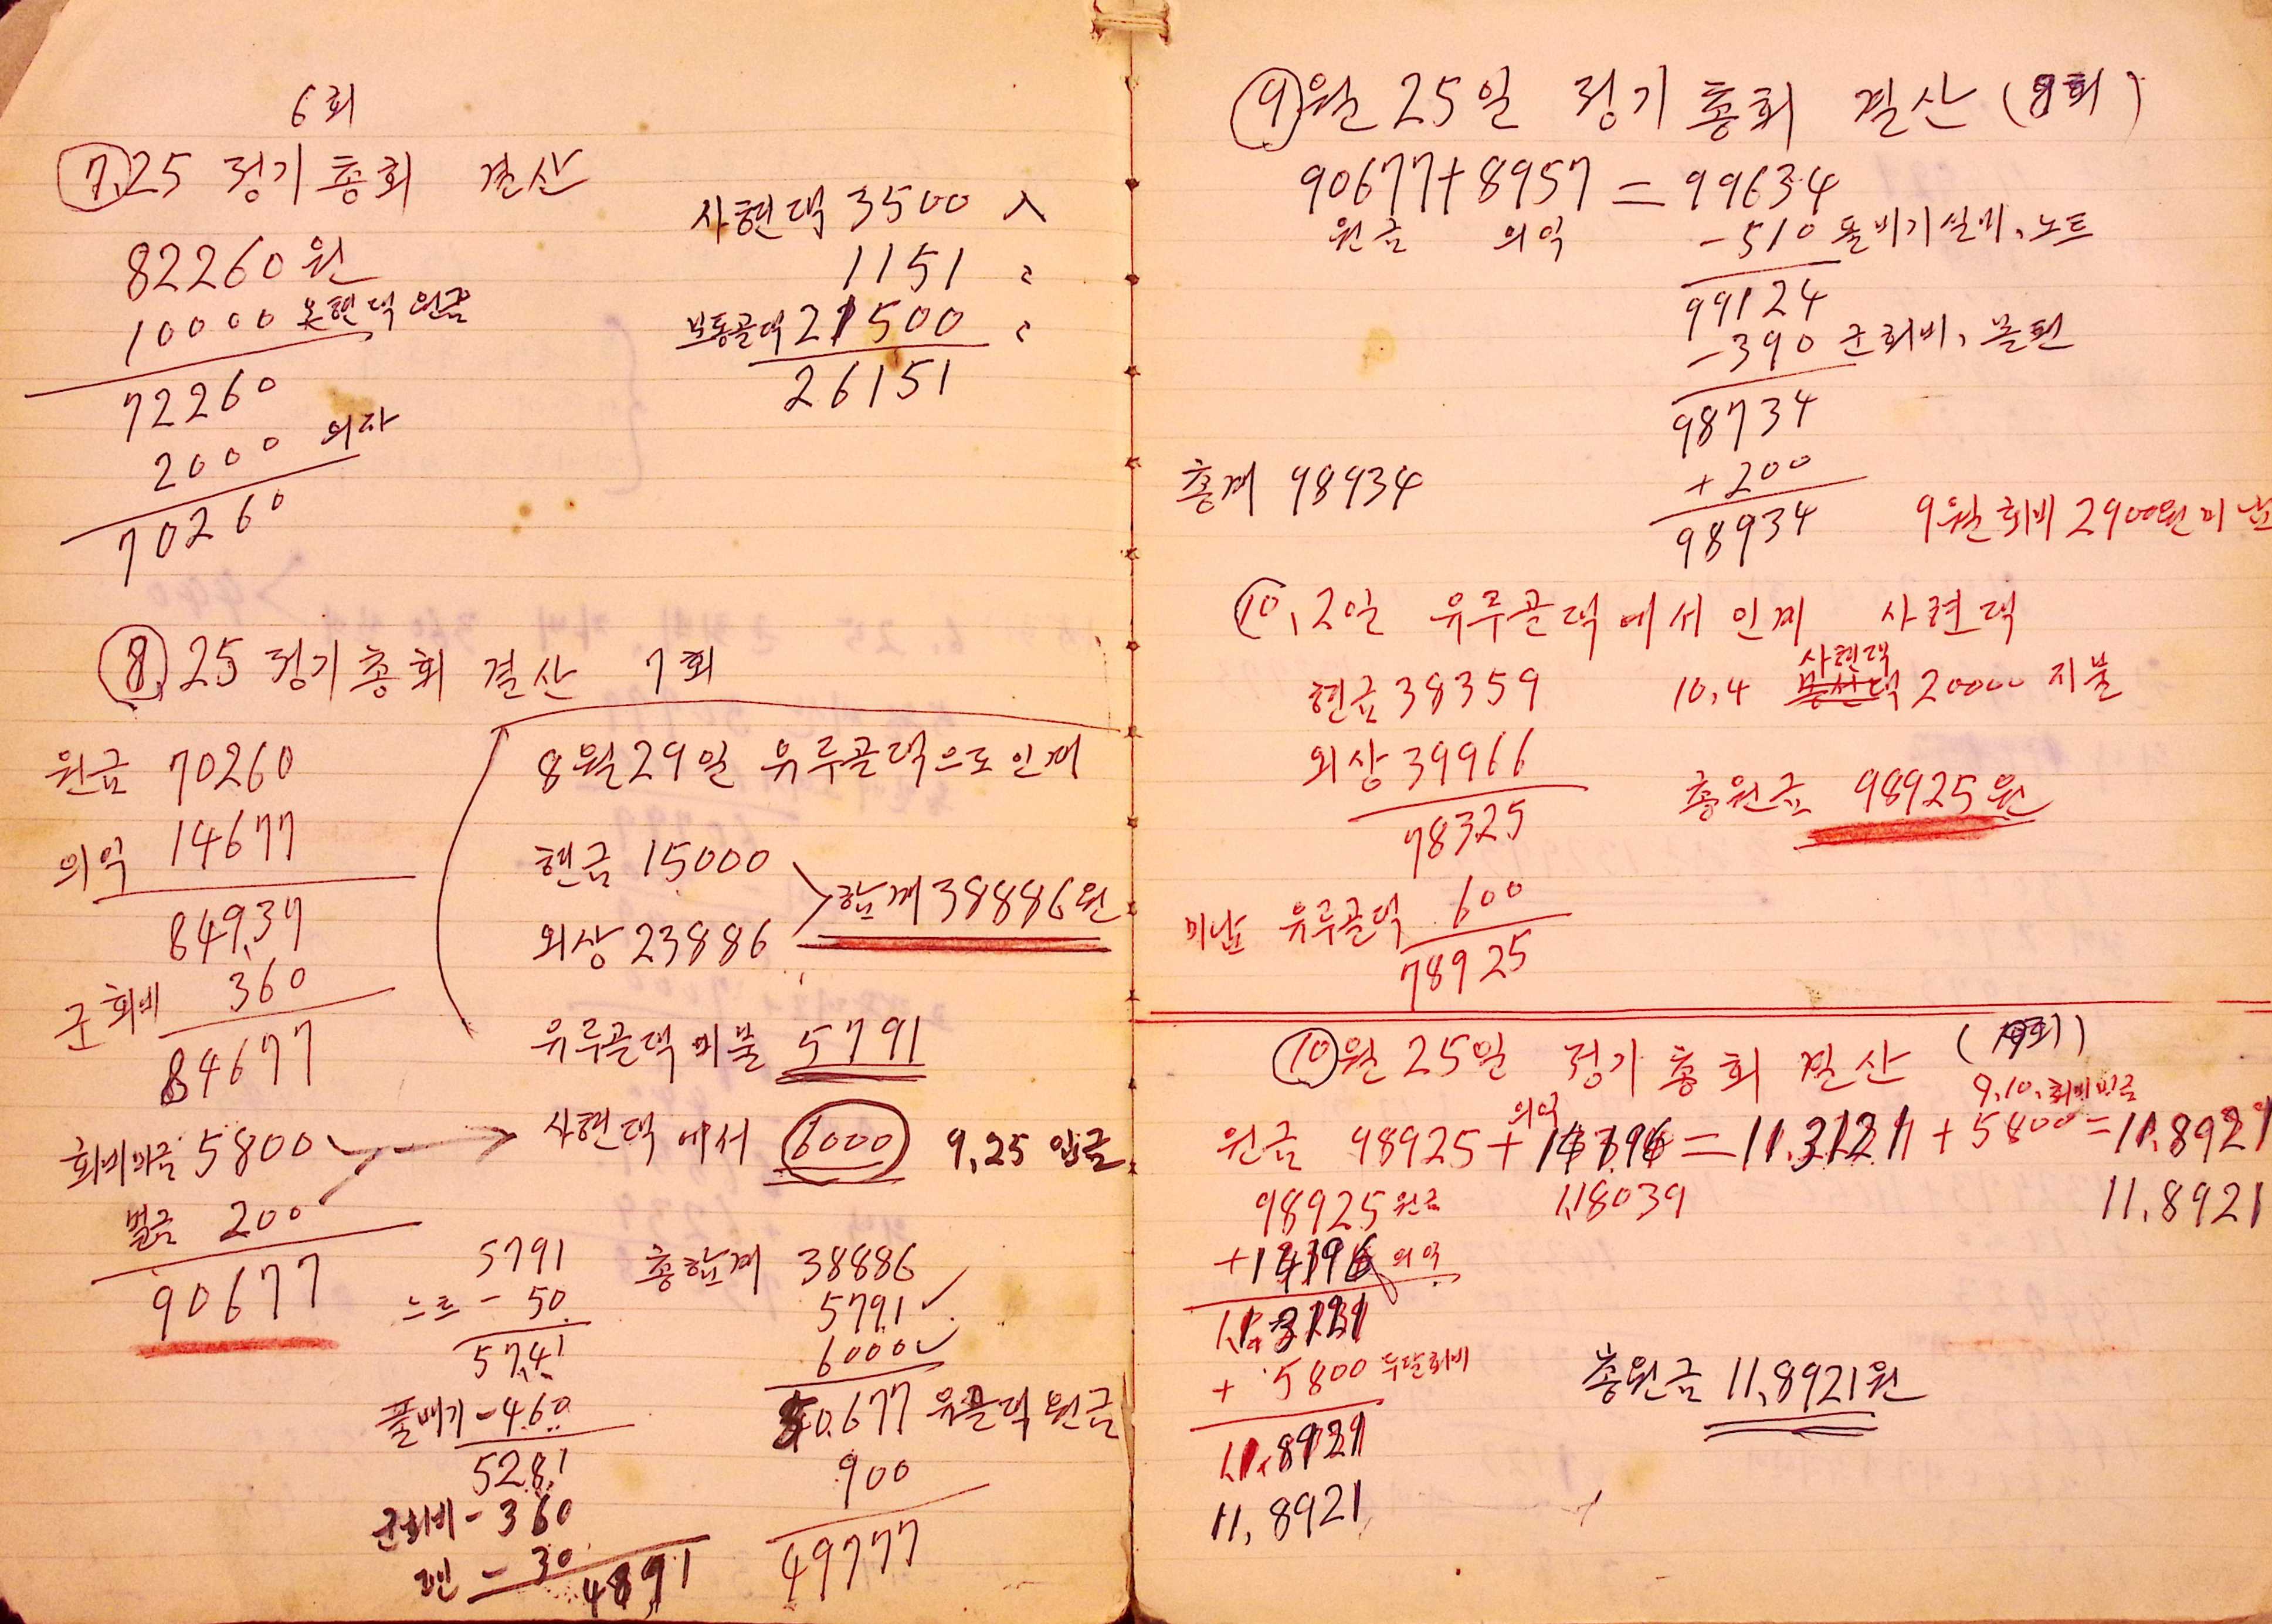 6회
7.25 정기총회 결산
82260원
10000 못현댁 원금
72260
2000 의자
70260
사현댁 3500 入
1151 〃
보통골댁 21500 〃
26151
8.25 정기총회 결산 7회
원금 70260
이익 14677
84937
군회비 360
84677
회비미금 5800
벌금 200
90677
8월 29일 유루골댁으로 인계
현금 15000
외상 23886
합계 38886원
유루골댁 미불 5791
사현댁에서 6000 9.25 입금
5791
노트 - 50
5741
풀베기 - 460
5281
군회비 - 360
펜 - 30
4891
총합계 38886
5791
6000
50677 유골댁 원금
900
49777
9월 25일 정기총회 결산 (8회)
90677 + 8957 = 99634
원금 이익
- 510 풀비기 실비, 노트
99124
- 390 군회비, 볼펜
98734
+ 200
총계 98934
98934
9월 회비 2900원 미납
10.2일 유루골댁에서 인계 사현댁
현금 38359
외상 39966
78325
미납 유루골댁 600
78925
10.4 사현댁 20000 지불
총원금 98925원
10월 25일 정기총회 결산 (9회)
9,10, 회비미금
이익
원금 98925 + 14196 = 11.3121 + 5800 = 11.8921
98925 원금
118039
11.8921
+ 14196 이익
11.3121
+ 5800 두달회비
11.8921
11,8921
총원금 11,8921원